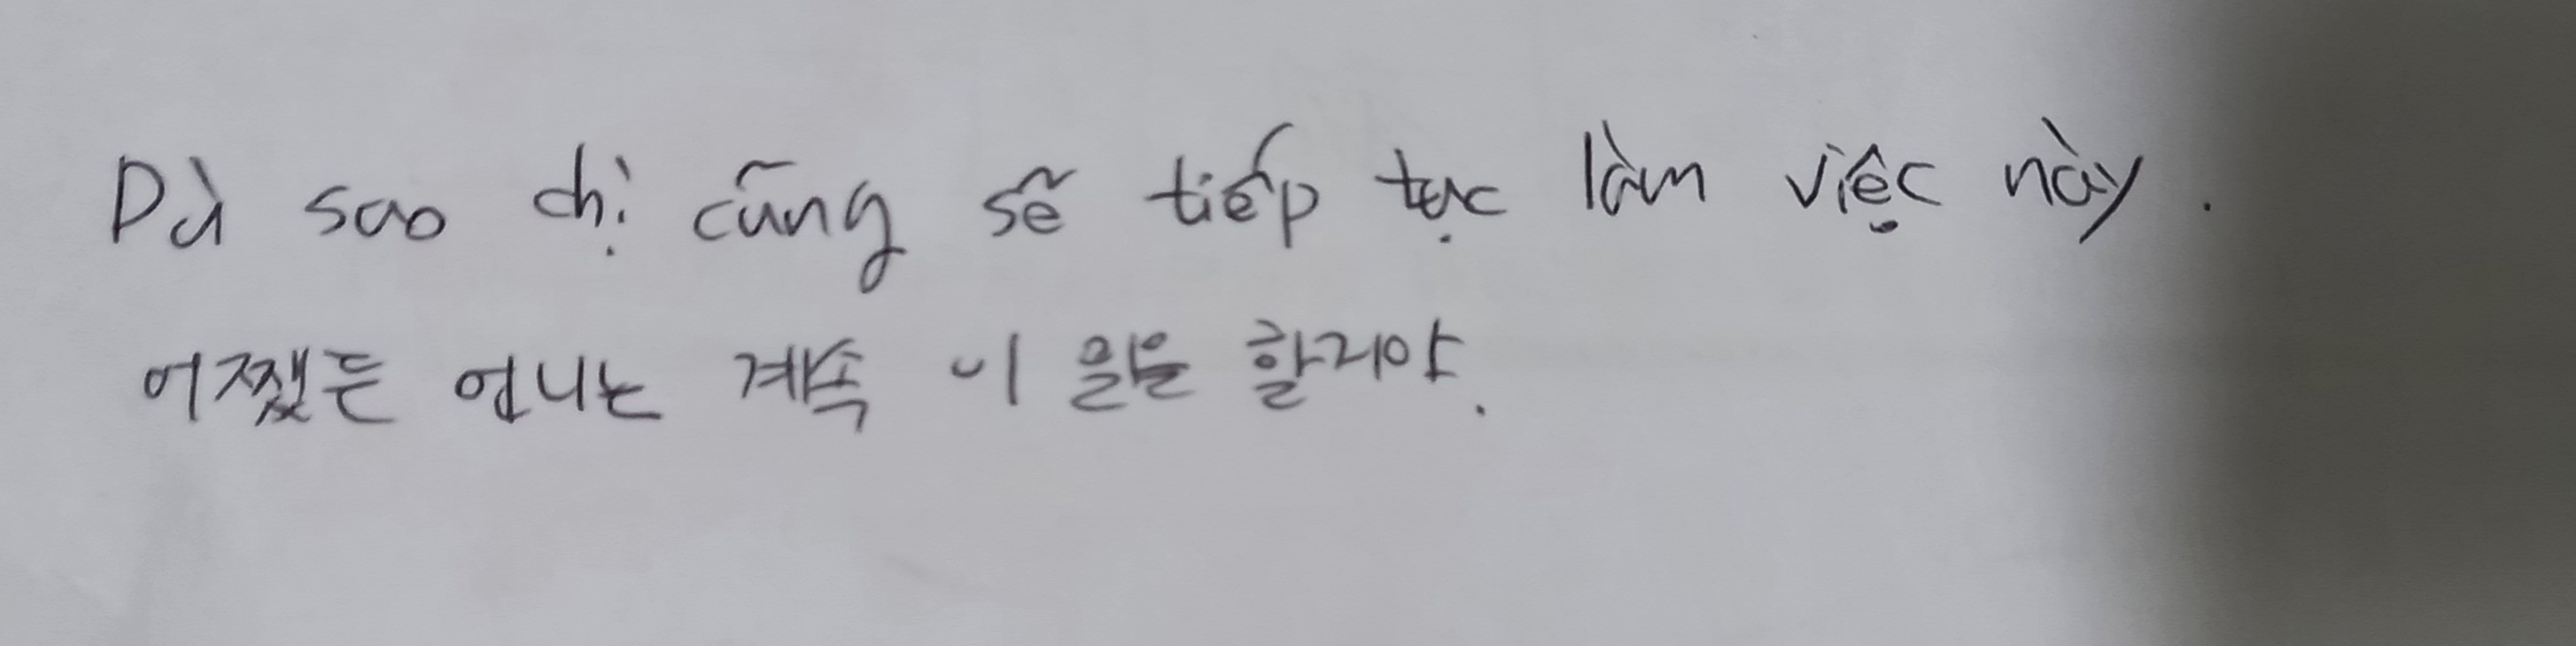 Dù sao chị cũng sẽ tiếp tục làm việc này.
어쨌든 언니는 계속 이 일을 할거야.